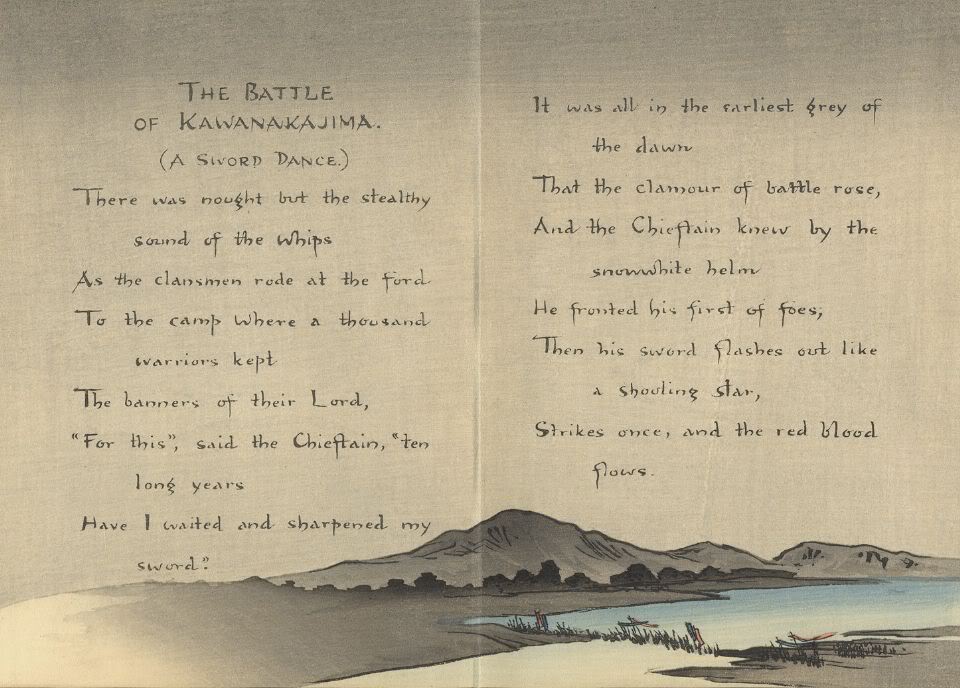 THE BATTLE
OF KAWANAKAJIMA.
(A SWORD DANCE.)
There was nought but the stealthy
sound of the whips
As the clansmen rode at the ford
To the camp where a thousand
warriors kept
The banners of their Lord,
"For this", said the Chieftain, "ten
long years
Have I waited and sharpened my
sword."
It was all in the earliest grey of
the dawn
That the clamour of battle rose,
And the Chieftain knew by the
snowwhite helm
He fronted his first of foes;
Then his sword flashes out like
a shooting star,
Strikes once, and the red blood
flows.